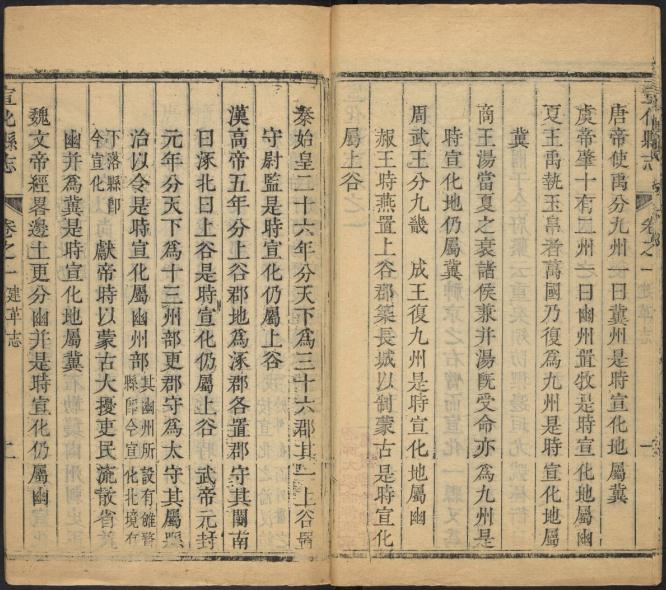 宣化縣志 卷之一 建革志 一
唐帝使禹分九州一曰冀州是時宣化地屬冀
虞帝肇十有二州一曰幽州置牧是時宣化地屬幽
夏王禹執玉帛者萬國乃復為九州是時宣化地屬
冀
商王湯當夏之衰諸侯兼并湯旣受命亦為九州是
時宣化地仍屬冀
周武王分九畿 成王復九州是時宣化地屬幽
赧王時燕置上谷郡築長城以制蒙古是時宣化
屬上谷
秦始皇二十六年分天下為三十六郡其一上谷置
守尉監是時宣化仍屬上谷
漢高帝五年分上谷郡地為涿郡各置郡守其關南
曰涿北曰上谷是時宣化仍屬上谷 武帝元封
元年分天下為十三州部更郡守為太守其屬縣
治以令是時宣化屬幽州部 其幽州所設有雊瞀縣歸今宣化北境有
下落縣卽今宣化 獻帝時以蒙古大擾吏民流散省
幽并為冀是時宣化地屬冀
魏文帝經畧邊土更分幽并是時宣化仍屬幽
宣化縣志 卷之一 建革志 二